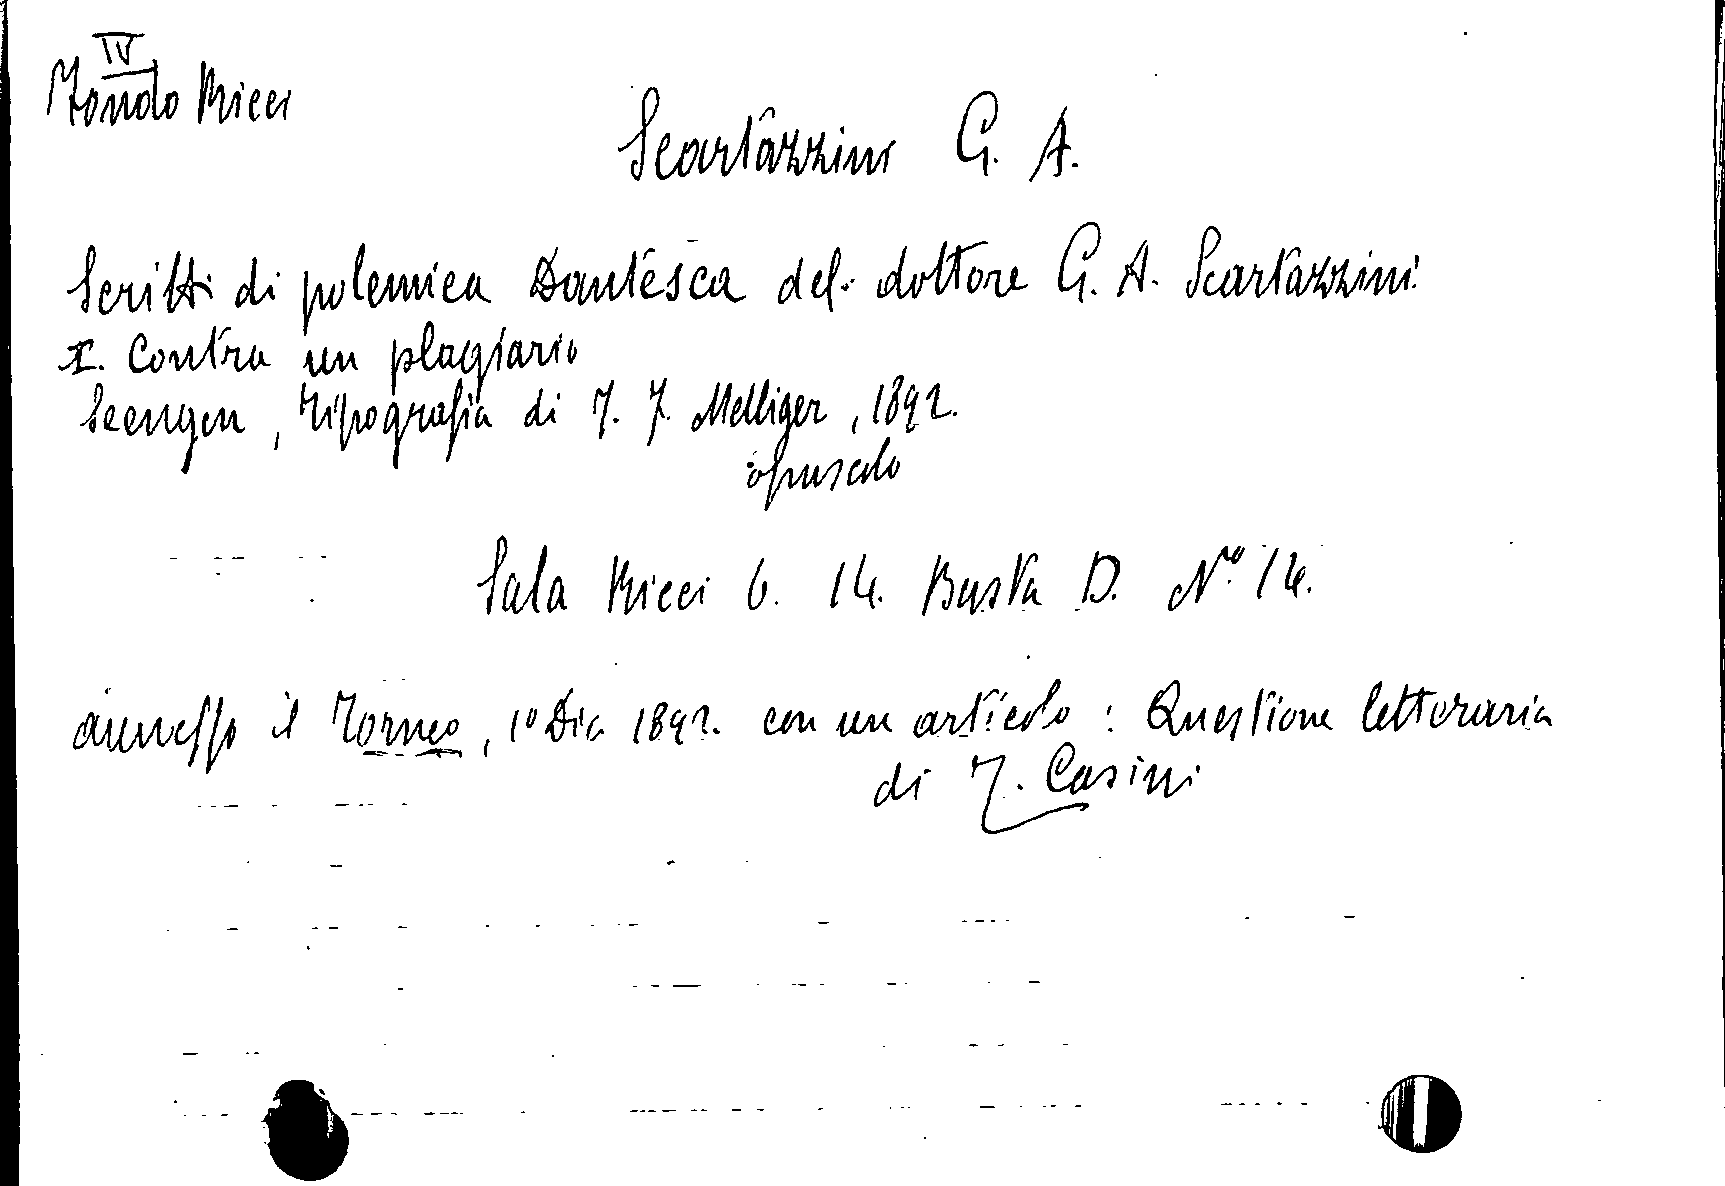 IV
Fondo Ricci
Scartazzini G. A.
Scritti di polemica Dantesca del dottore G. A. Scartazzini
I. Contra un plagiario
Seengen, Tipografia di J. J. Melliger, 1892.
opuscolo
Sala Ricci 6. 14. Busta D. N.º 14.
annesso il Torneo, 1º Dic 1892. con un articolo: Questione letteraria
di T. Casini